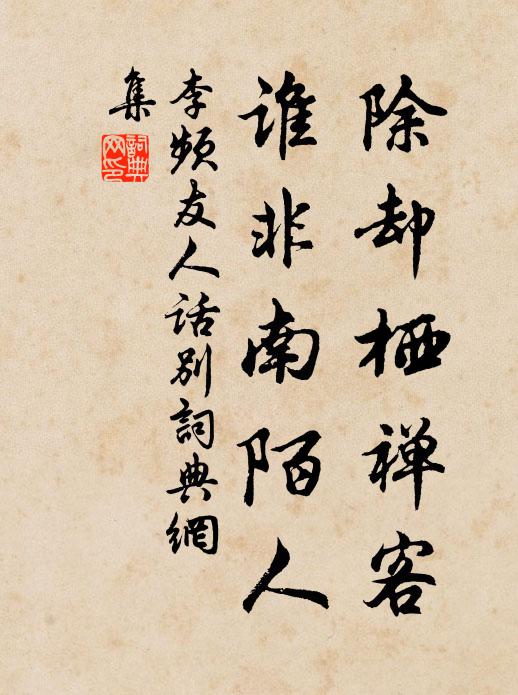 除却栖禅客
谁非南陌人
李频友人话别詞典網
集
詞典
网印